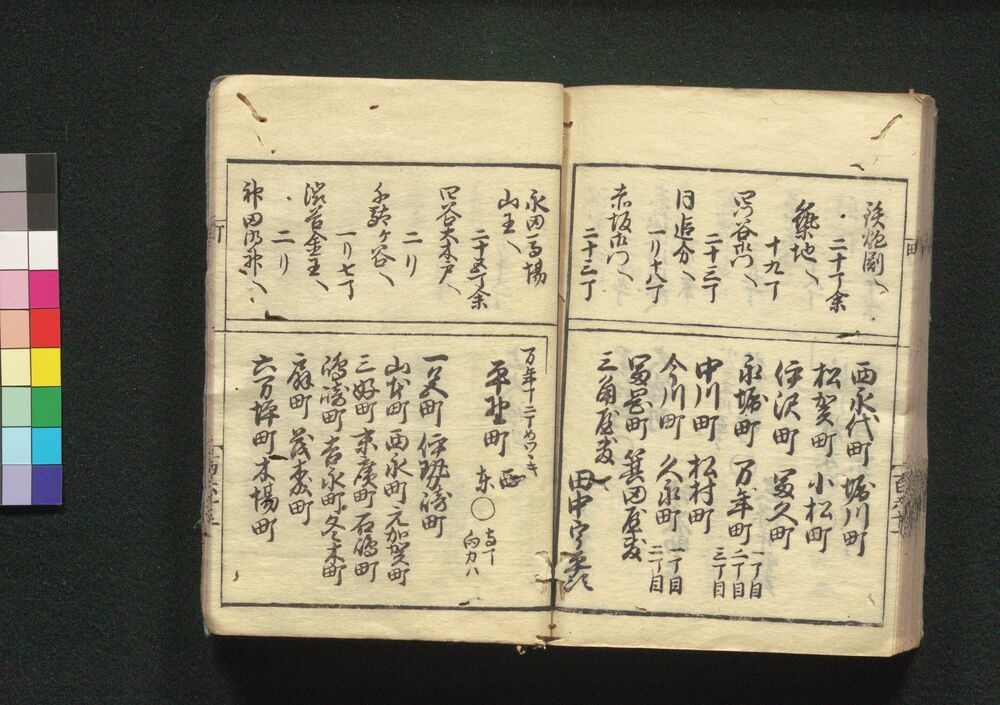 鉄炮洲へ
二十丁余
築地へ
十九丁
四ツ谷御門へ
二十三丁
同追分へ
一リ十八丁
赤坂御門へ
二十三丁
西永代町 堀川町
松賀町 小松町
伊沢町 冨久町
永堀町 万年町
一丁目
二丁目
三丁目
中川町 松村町
今川町 久永町
一丁目
二丁目
冨田町 箕田屋敷
三角屋敷
永田馬場
山王へ
二十五丁余
四谷大木戸へ
二リ
千駄ヶ谷へ
一リ七丁
渋谷金王へ
二リ
神田明神へ
万年丁二丁めつゝき
平野町
西
東
山本町 西永町 元加賀町
三好町 末廣町 石嶋町
嶋崎町 吉永町 冬木町
扇町 茂森町
六万坪町 木場町